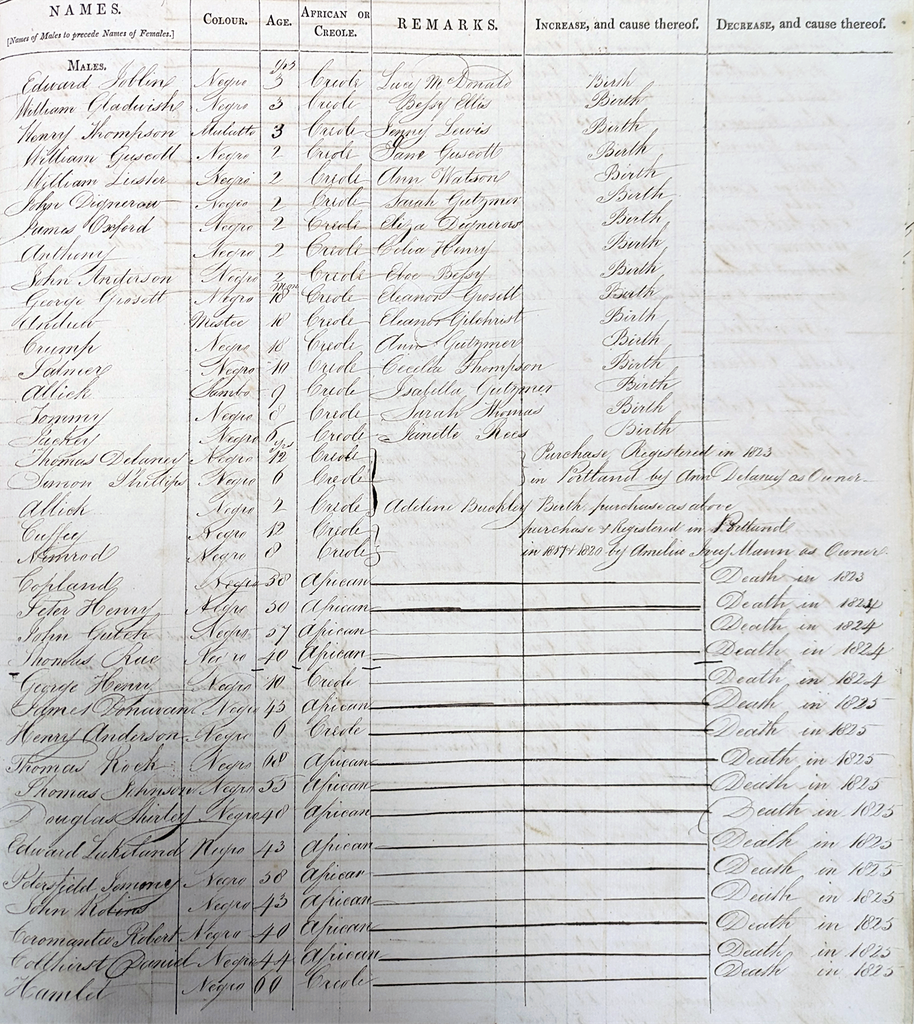 NAMES. COLOUR. AGE. AFRICAN OR CREOLE. REMARKS. INCREASE, and cause thereof. DECREASE, and cause thereof.
[Names of Males to precede Names of Females.]
MALES.
Edward Joblin Negro 3 yrs Creole Lucy McDonald Birth
William Gladwish Negro 3 Creole Bessy Ellis Birth
Henry Thompson Mulatto 3 Creole Jenny Lewis Birth
William Guscott Negro 2 Creole Jane Guscott Birth
William Lister Negro 2 Creole Ann Watson Birth
John Digneron Negro 2 Creole Sarah Gutzmer Birth
James Oxford Negro 2 Creole Eliza Digneron Birth
Anthony Negro 2 Creole Celia Henry Birth
John Anderson Negro 2 Creole Eboe Bessy Birth
George Grosett Negro 18 mos Creole Eleanor Grosett Birth
Andrew Mustee 18 Creole Eleanor Gilchrist Birth
Crump Negro 18 Creole Ann Gutzmer Birth
Palmer Negro 10 Creole Cecelia Thompson Birth
Allick Sambo 9 Creole Isabella Gutzmer Birth
Tommy Negro 8 Creole Sarah Thomas Birth
Negro 6 Creole Janette Rees Birth
Thomas Delaney Negro 12 yrs Creole Purchase, Registered in 1823
Simon Phillips Negro 6 Creole in Portland by Ann Delaney as Owner
Allick Negro 2 Creole Adeline Buckley Birth, purchase as above
Cuffey Negro 12 Creole purchase & Registered in Portland
Nimrod Negro 8 Creole in 1817 & 1820 by Amelia Mann as Owner
Copland Negro 58 African Death in 1823
Peter Henry Negro 50 African Death in 1824
John Gutch Negro 57 African Death in 1824
Thomas Rae Negro 40 African Death in 1824
George Henry Negro 10 Creole Death in 1824
James Donavan Negro 45 African Death in 1825
Henry Anderson Negro 6 Creole Death in 1825
Thomas Rock Negro 68 African Death in 1825
Thomas Johnson Negro 55 African Death in 1825
Douglas Shirley Negro 48 African Death in 1825
Edward Negro 43 African Death in 1825
Petersfield Jemmy Negro 58 African Death in 1825
John Robins Negro 43 African Death in 1825
Coromantee Robert Negro 40 African Death in 1825
Colthirst Daniel Negro 44 African Death in 1825
Hamlet Negro 60 Creole Death in 1825